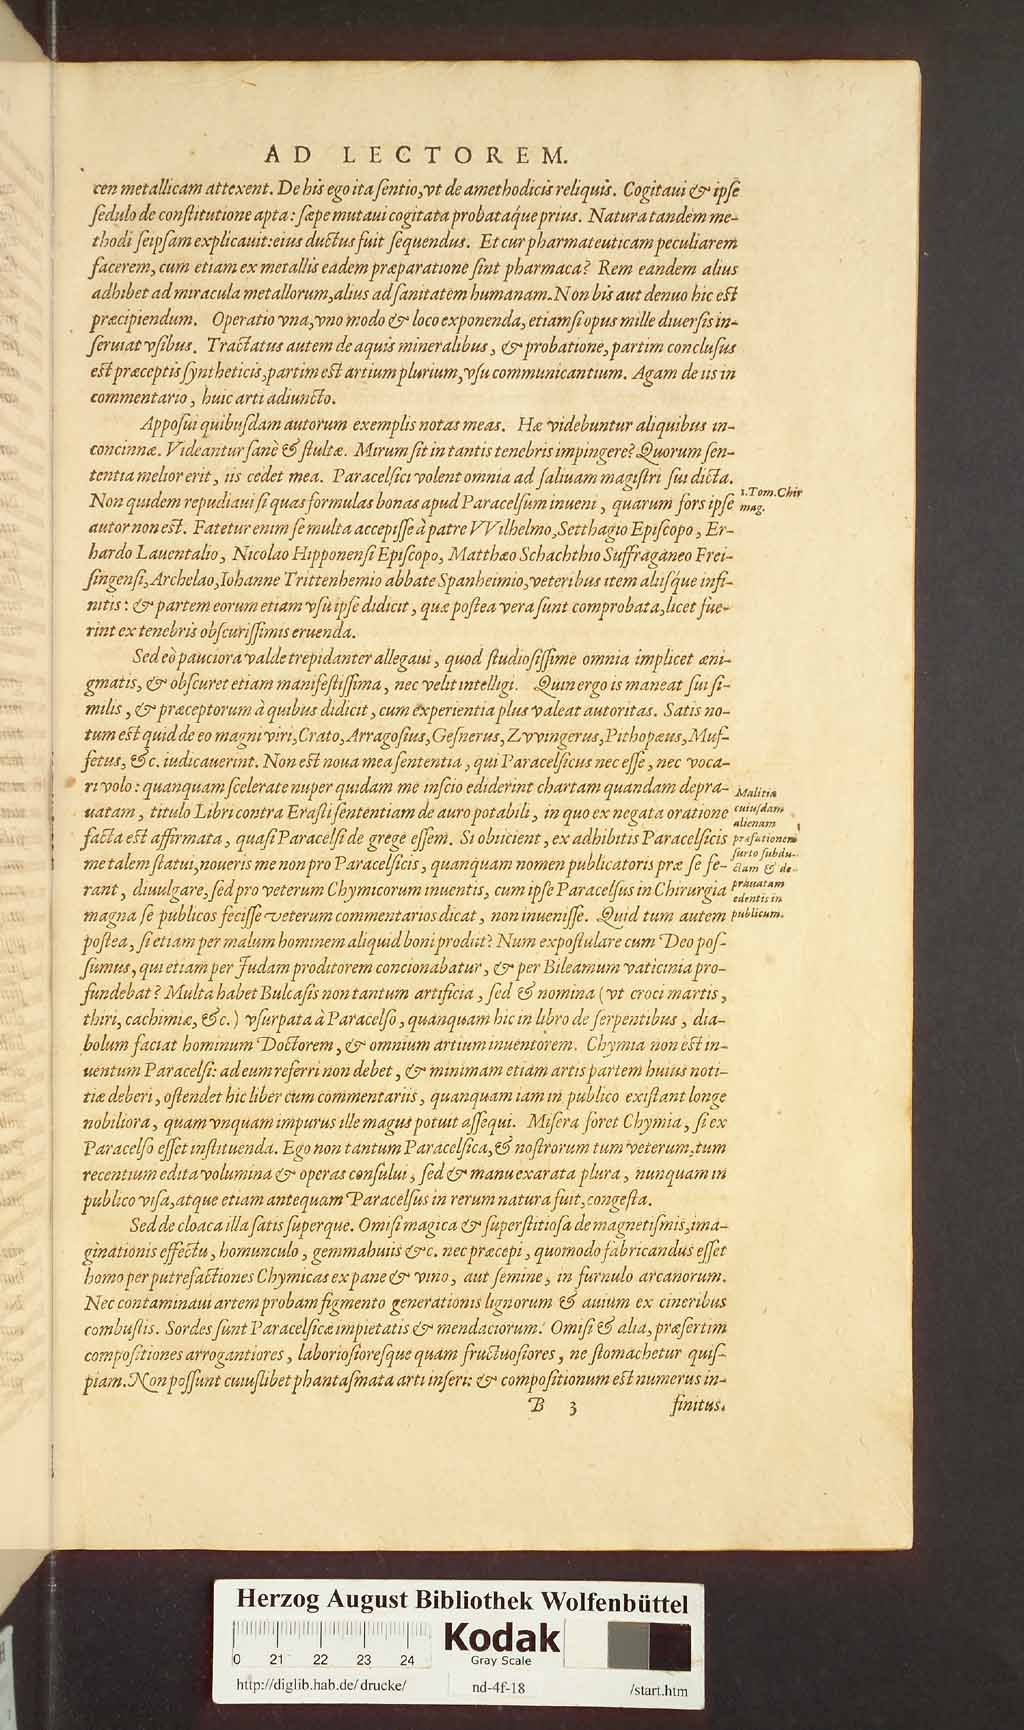 AD LECTOREM.
cen metallicam attexent. De his ego ita ſentio, vt de amethodicis reliquis. Cogitaui & ipſe
ſedulo de conſtitutione apta: ſæpe mutaui cogitata probataq́ue prius. Natura tandem me-
thodi ſeipſam explicauit: eius ductus fuit ſequendus. Et cur pharmateuticam peculiarem
facerem, cum etiam ex metallis eadem præparatione ſint pharmaca? Rem eandem alius
adhibet ad miracula metallorum, alius ad ſanitatem humanam. Non bis aut denuo hic eſt
præcipiendum. Operatio vna, vno modo & loco exponenda, etiamſi opus mille diuerſis in-
ſeruiat vſibus. Tractatus autem de aquis mineralibus, & probatione, partim concluſus
eſt præceptis ſyntheticis, partim eſt artium plurium, vſu communicantium. Agam de iis in
commentario, huic arti adiuncto.
Appoſui quibuſdam autorum exemplis notas meas. Hæ videbuntur aliquibus in-
concinnæ. Videantur ſanè & ſtultæ. Mirum ſit in tantis tenebris impingere? Quorum ſen-
tentia melior erit, iis cedet mea. Paracelſici volent omnia ad ſaliuam magiſtri ſui dicta.
Non quidem repudiaui ſi quas formulas bonas apud Paracelſum inueni, quarum fors ipſe
1. Tom. Chir
mag.
autor non eſt. Fatetur enim ſe multa accepiſſe à patre VVilhelmo, Setthagio Epiſcopo, Er-
hardo Lauentalio, Nicolao Hipponenſi Epiſcopo, Matthæo Schachthio Suffraganeo Frei-
ſingenſi, Archelao, Iohanne Trittenhemio abbate Spanheimio, veteribus item aliiſq́ue infi-
nitis: & partem eorum etiam vſu ipſe didicit, quæ poſtea vera ſunt comprobata, licet fue-
rint ex tenebris obſcuriſſimis eruenda.
Sed eò pauciora valde trepidanter allegaui, quod ſtudioſiſſime omnia implicet æni-
gmatis, & obſcuret etiam manifeſtiſſima, nec velit intelligi. Quin ergo is maneat ſui ſi-
milis, & præceptorum à quibus didicit, cum experientia plus valeat autoritas. Satis no-
tum eſt quid de eo magni viri, Crato, Arragoſius, Geſnerus, Zvvingerus, Pithopæus, Muf-
fetus, &c. iudicauerint. Non eſt noua mea ſententia, qui Paracelſicus nec eſſe, nec voca-
ri volo: quanquam ſcelerate nuper quidam me inſcio ediderint chartam quandam depra-
uatam, titulo Libri contra Eraſti ſententiam de auro potabili, in quo ex negata oratione
facta eſt affirmata, quaſi Paracelſi de grege eſſem. Si obiicient, ex adhibitis Paracelſicis
me talem ſtatui, noueris me non pro Paracelſicis, quanquam nomen publicatoris præ ſe fe-
rant, diuulgare, ſed pro veterum Chymicorum inuentis, cum ipſe Paracelſus in Chirurgia
magna ſe publicos feciſſe veterum commentarios dicat, non inueniſſe. Quid tum autem
Malitia
cuiuſdam
alienam
præfationem
furto ſubdu-
ctam & de-
prauatam
edentis in
publicum.
poſtea, ſi etiam per malum hominem aliquid boni prodiit? Num expoſtulare cum Deo poſ-
ſumus, qui etiam per Judam proditorem concionabatur, & per Bileamum vaticinia pro-
fundebat? Multa habet Bulcaſis non tantum artificia, ſed & nomina (vt croci martis,
thiri, cachimiæ, &c.) vſurpata à Paracelſo, quanquam hic in libro de ſerpentibus, dia-
bolum faciat hominum Doctorem, & omnium artium inuentorem. Chymia non eſt in-
uentum Paracelſi: ad eum referri non debet, & minimam etiam artis partem huius noti-
tiæ deberi, oſtendet hic liber cum commentariis, quanquam iam in publico exiſtant longe
nobiliora, quam vnquam impurus ille magus potuit aſſequi. Miſera foret Chymia, ſi ex
Paracelſo eſſet inſtituenda. Ego non tantum Paracelſica, & noſtrorum tum veterum, tum
recentium edita volumina & operas conſului, ſed & manu exarata plura, nunquam in
publico viſa, atque etiam antequam Paracelſus in rerum natura fuit, congeſta.
Sed de cloaca illa ſatis ſuperque. Omiſi magica & ſuperſtitioſa de magnetiſmis, ima-
ginationis effectu, homunculo, gemmahuiis &c. nec præcepi, quomodo fabricandus eſſet
homo per putrefactiones Chymicas ex pane & vino, aut ſemine, in furnulo arcanorum.
Nec contaminaui artem probam figmento generationis lignorum & auium ex cineribus
combuſtis. Sordes ſunt Paracelſicæ impietatis & mendaciorum. Omiſi & alia, præſertim
compoſitiones arrogantiores, laborioſioreſque quam fructuoſiores, ne ſtomachetur quiſ-
piam. Non poſſunt cuiuſlibet phantaſmata arti inſeri: & compoſitionum eſt numerus in-
B 3 finitus.
Herzog August Bibliothek Wolfenbüttel
Kodak
Gray Scale
0 21 22 23 24
http://diglib.hab.de/drucke/ nd-4f-18 /start.htm